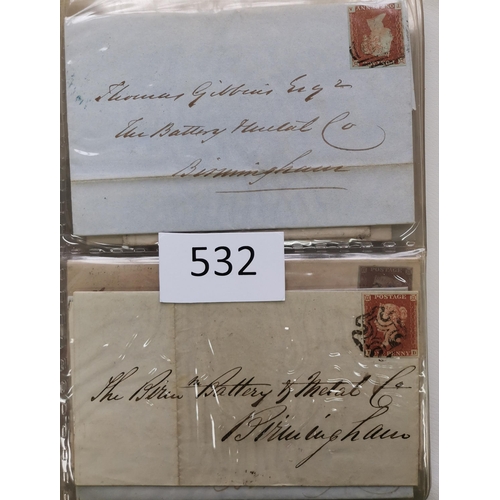 Thomas Gibbins Esqre
The Battery & Metal Co
Birmingham
532
POSTAGE
The Birmm Battery & Metal Co
Birmingham